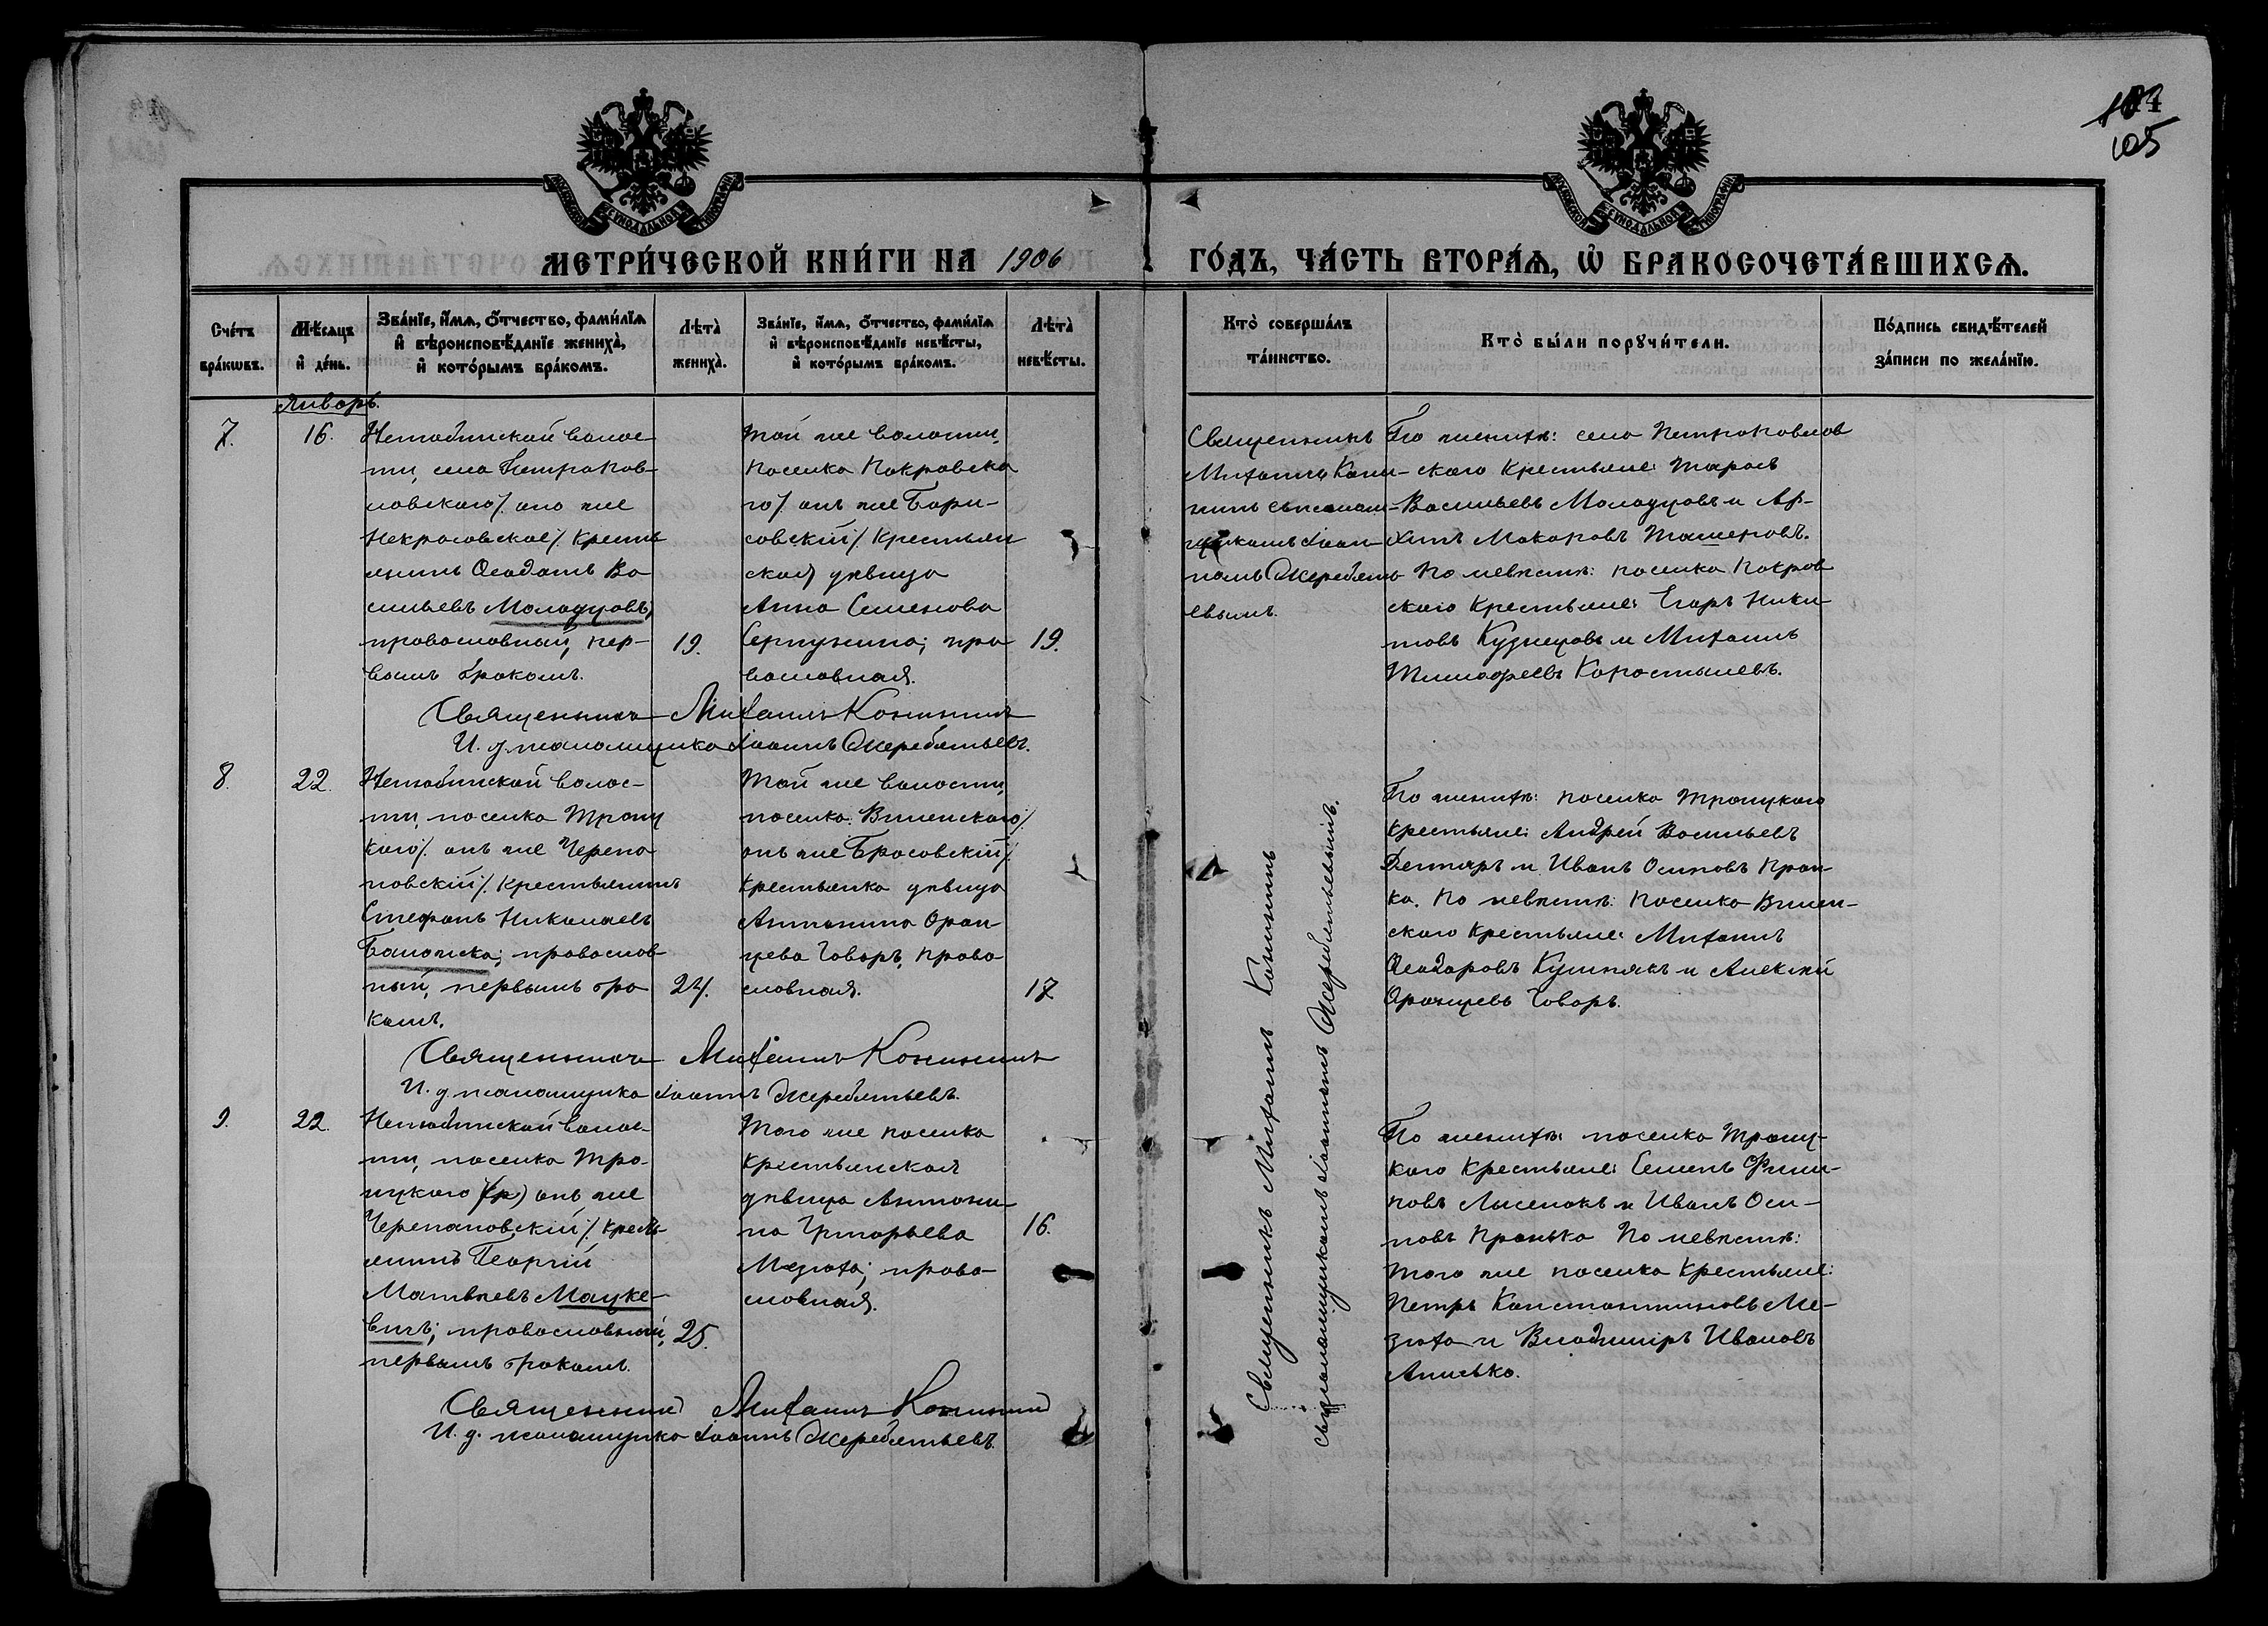 104
105
МЕТРИ́ЧЕСКОЙ КНИ́ГИ НА 1906
ГО́ДЪ, ЧА́СТЬ ВТОРА́Ѧ, Ѡ҆ БРАКОСОЧЕТА́ВШИХСѦ.
Сче́тъ бра́кѡвъ.
Мѣ́сѧцъ и҆ де́нь.
Зва́нїе, и҆́мѧ, ѻ҆́тчество, фами́лїѧ
и҆ вѣроисповѣ́данїе жениха̀,
и҆ кото́рымъ бра́комъ.
Лѣта̀ жениха̀.
Зва́нїе, и҆́мѧ, ѻ҆́тчество, фами́лїѧ
и҆ вѣроисповѣ́данїе невѣ́сты,
и҆ кото́рымъ бра́комъ.
Лѣта̀ невѣ́сты.
Кто̀ соверша́лъ
та́инство.
Кто̀ бы́ли порꙋчи́тели.
По́дпись свидѣ́телей
за́писи по жела́нїю.
Январь.
7.
16.
волос-
ти, села Петропав-
ловскаго /. оно же
Некрасовское /. кресть
янинъ Ѳеодотъ Ва
сильевъ Молодцовъ,
православный, пер-
вымъ бракомъ.
19.
Той же волости,
поселка Покровска
го /. онъ же Бори-
совскій /. крестьян
ская дѣвица
Анна Семенова
православная.
19.
Священникъ
Михаилъ Кони-
нинъ съ псалом-
щикомъ Іоан-
номъ Жеребять-
евымъ.
По женихѣ: села Петропавлов
скаго крестьяне: Тарасъ
Васильевъ Молодцовъ и Ар-
хипъ Макаровъ
По невѣстѣ: поселка Покров
скаго крестьяне: Егоръ Ники-
товъ Кузнецовъ и Михаилъ
Тимофеевъ Коростылевъ.
Священникъ Михаилъ Конининъ
И. д. псаломщика Іоаннъ Жеребятьевъ.
8.
22.
волос-
ти, поселка Троиц
каго /. онъ же Черепа
новскій /. крестьянинъ
Стефанъ Николаевъ
православ
ный, первымъ бра
комъ.
24.
Той же волости,
поселка Виленскаго /.
онъ же Брасовскій /.
крестьянка дѣвица
Антонина Фран-
цева Говоръ, право
славная.
17
Священникъ Михаилъ Конининъ
съ псаломщикомъ Іоанномъ Жеребятьевымъ.
По женихѣ: поселка Троицкаго
крестьяне: Андрей Васильевъ
Дегтяръ и Иванъ Осиповъ Прон-
ка. По невѣстѣ: поселка Вилен-
скаго крестьяне: Михаилъ
Ѳеодоровъ Кушнякъ и Алексѣй
Францевъ Говоръ.
Священникъ Михаилъ Конининъ
И. д. псаломщика Іоаннъ Жеребятьевъ.
9.
22.
волос-
ти, поселка Тро-
ицкаго онъ же
Черепановскій /. кресть-
янинъ Георгій
Матвѣевъ Мацке-
вичъ; православный,
первымъ бракомъ.
25.
Того же поселка
крестьянская
дѣвица Антони-
на Григорьева
Мезюха; право-
славная.
16.
По женихѣ: поселка Троиц-
каго крестьяне: Семенъ Фили-
повъ Лысенокъ и Иванъ Оси-
повъ Пронько По невѣстѣ:
того же поселка крестьяне:
Петръ Константиновъ Ме-
зюха и Владиміръ Ивановъ
Анисько.
Священникъ Михаилъ Конининъ
И. д. псаломщика Іоаннъ Жеребятьевъ.